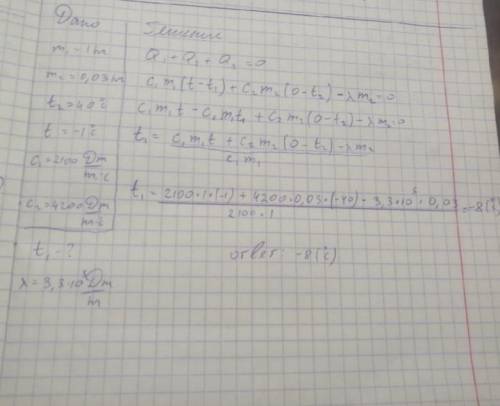 Дано
m₁ = 1 m
m₂ = 0,03 m
t₂ = 40°c
t = -1°c
c₁ = 2100 Dm/m·c
c₂ = 4200 Dm/m·c
t₁ - ?
λ = 3,3·10⁵ Dm/m
Решение
Q₁ + Q₂ + Q₃ = 0
c₁m₁(t - t₁) + c₂m₂(0 - t₂) - λm₂ = 0
c₁m₁t - c₁m₁t₁ + c₂m₂(0 - t₂) - λm₂ = 0
t₁ = c₁m₁t + c₂m₂(0 - t₂) - λm₂ / c₁m₁
t₁ = 2100·1·(-1) + 4200·0,03·(-40) - 3,3·10⁵·0,03 / 2100·1 = -8(°c)
ответ: -8(°c)